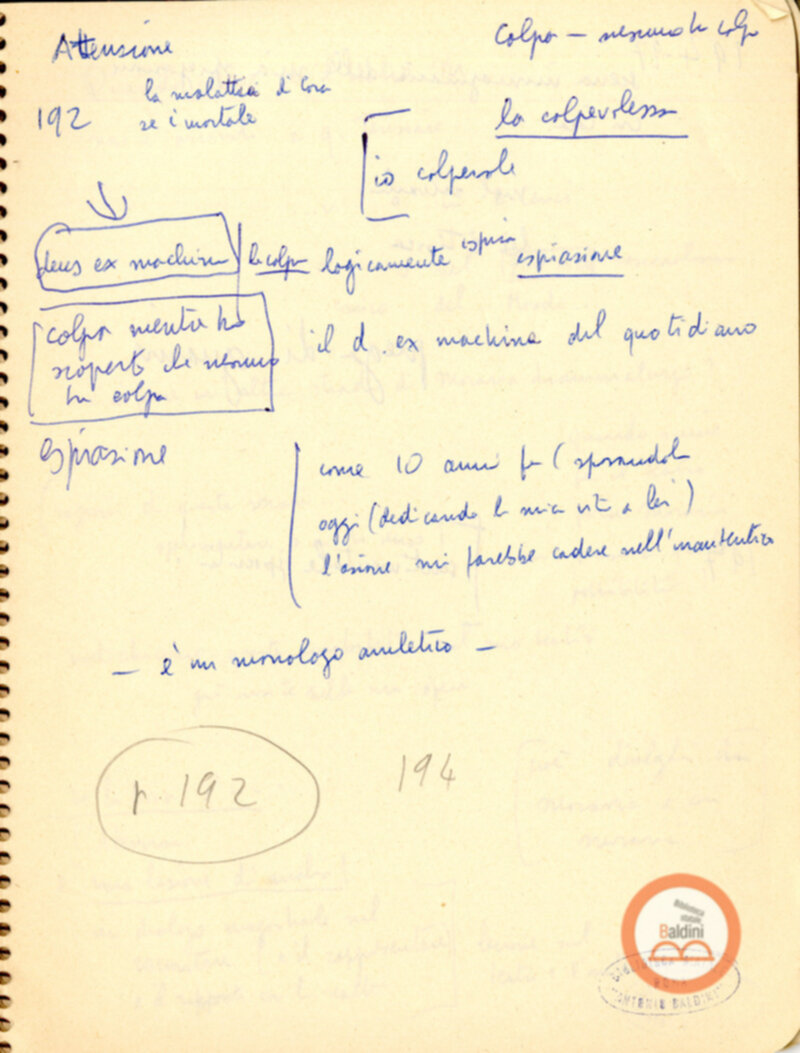 Attensione
colpa — nessuno ha colpa
192
la malattia di Cora
se è mortale
la colpevolezza
io colpevole
deus ex machina
la colpa logicamente ispira espiasione
colpa mentre ho
scoperto che nessuno
ha colpa
il d ex machina del quotidiano
espiasione
come 10 anni fa (sposandola
oggi (dedicando la mia vita a lei)
l'azione mi farebbe cadere nell'inautentico
— è un monologo amletico —
p. 192
194
Biblioteca
statale
Baldini
BIBLIOTECA
ROMA
"ANTONIO BALDINI"